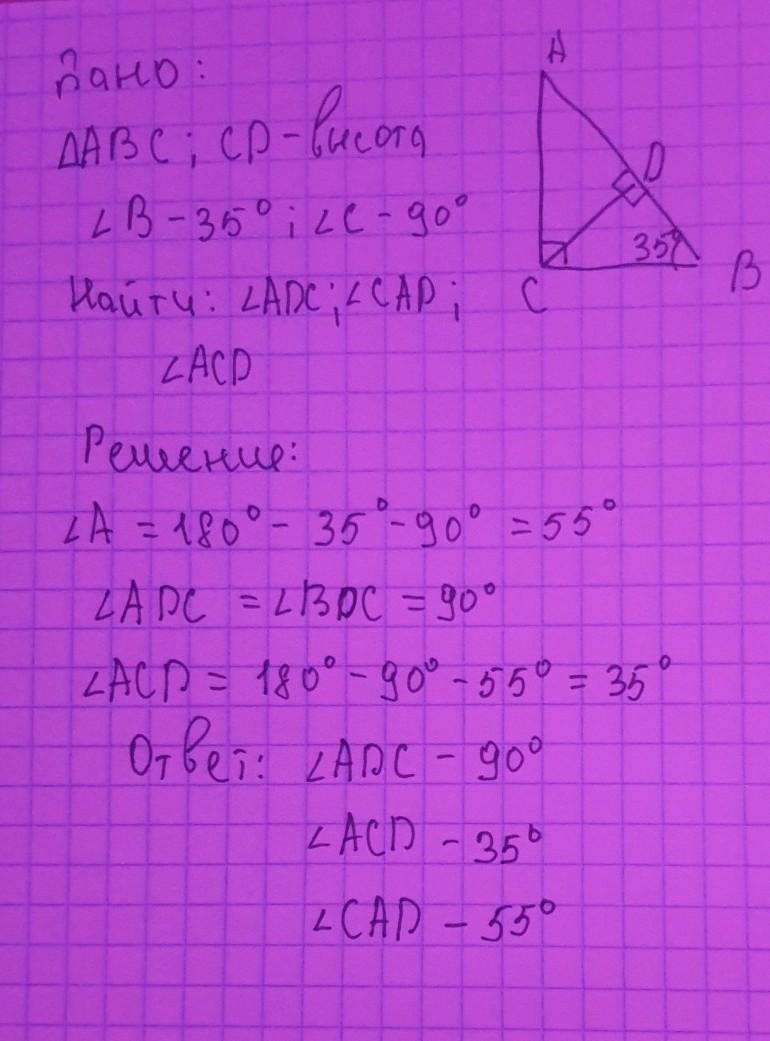 Дано:
∆ABC; CD-высота
∠B - 35°; ∠C - 90°
Найти: ∠ADC; ∠CAD;
∠ACD
Решение:
∠A = 180° - 35° - 90° = 55°
∠ADC = ∠BDC = 90°
∠ACD = 180° - 90° - 55° = 35°
Ответ: ∠ADC - 90°
∠ACD - 35°
∠CAD - 55°
A
D
35°
C
B